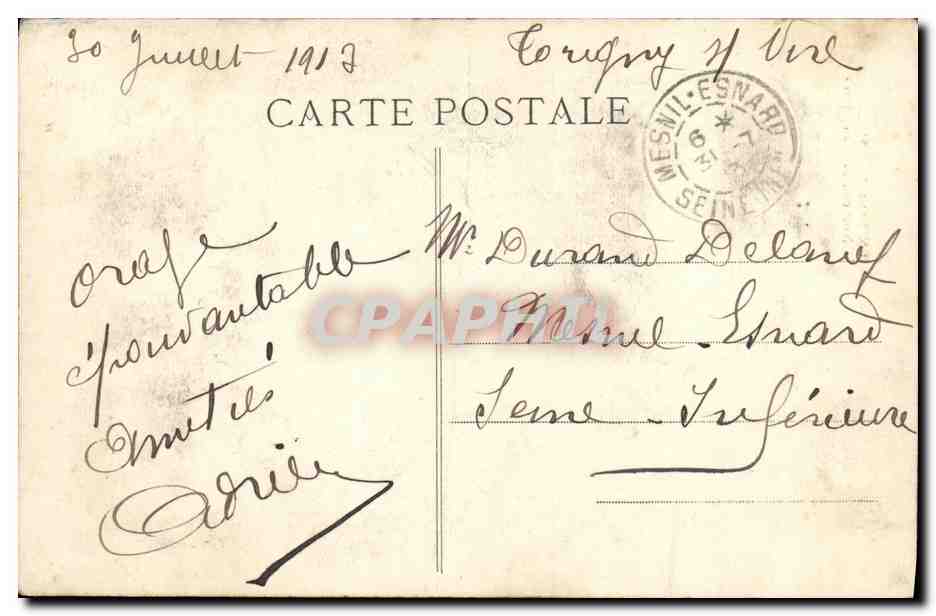 30 Juillet 1913
Torigny s/ Vire
CARTE POSTALE
MESNIL-ESNARD
6 * 7
31
SEINE INFRE
orage
épouvantable
Amitiés
Adrien
Mr. Durand Delanef
Mesnil-Esnard
Seine-Inférieure
CPAPHIL